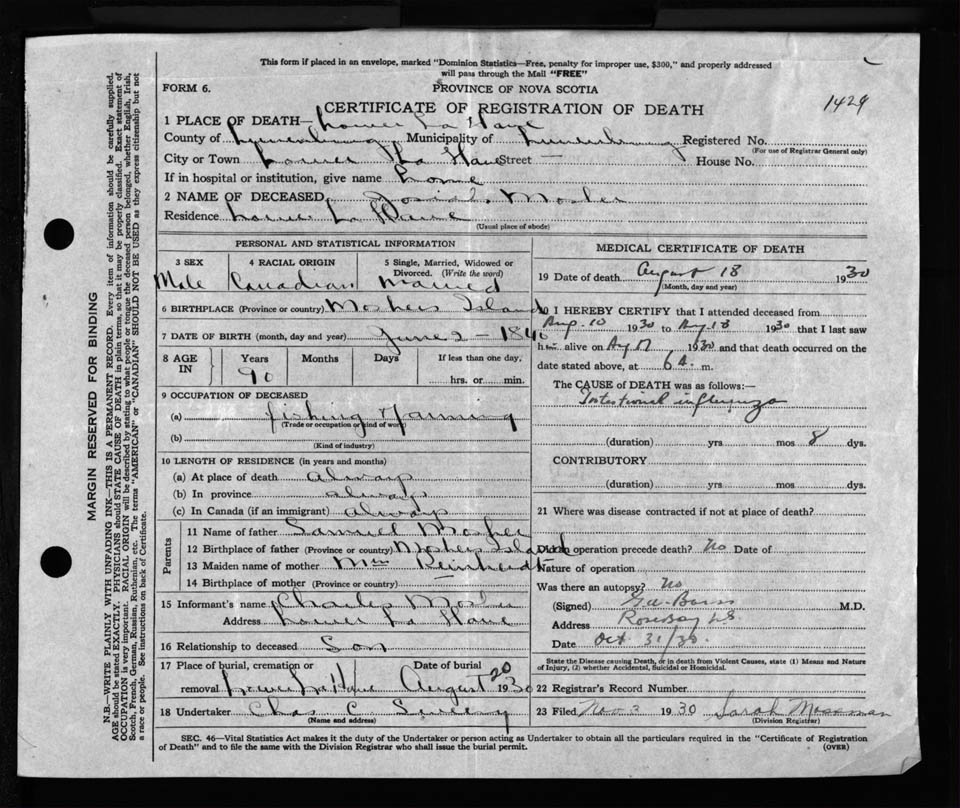 This form if placed in an envelope, marked "Dominion Statistics—Free, penalty for improper use, $300," and properly addressed
will pass through the Mail "FREE"
FORM 6.
PROVINCE OF NOVA SCOTIA
1429
CERTIFICATE OF REGISTRATION OF DEATH
1 PLACE OF DEATH— Lower La Have
County of Lunenburg Municipality of Lunenburg Registered No.
(For use of Registrar General only)
City or Town Lower La Have Street — House No.
If in hospital or institution, give name home
2 NAME OF DECEASED Josiah Mosher
Residence Lower La Have
(Usual place of abode)
PERSONAL AND STATISTICAL INFORMATION
3 SEX 4 RACIAL ORIGIN 5 Single, Married, Widowed or Divorced. (Write the word)
Male Canadian Married
6 BIRTHPLACE (Province or country) Moshers Island
7 DATE OF BIRTH (month, day and year) June 2 - 1840
8 AGE IN Years Months Days If less than one day,
90 hrs. or min.
9 OCCUPATION OF DECEASED
(a) Fishing Farming
(Trade or occupation or kind of work)
(b)
(Kind of industry)
10 LENGTH OF RESIDENCE (in years and months)
(a) At place of death always
(b) In province always
(c) In Canada (if an immigrant) always
Parents
11 Name of father Samuel Mosher
12 Birthplace of father (Province or country) Moshers Island
13 Maiden name of mother Miss Reinhardt
14 Birthplace of mother (Province or country)
15 Informant's name Charles Mosher
Address Lower La Have
16 Relationship to deceased Son
17 Place of burial, cremation or removal Lower La Have Date of burial August 20 1930
18 Undertaker Chas C
(Name and address)
MEDICAL CERTIFICATE OF DEATH
19 Date of death August 18 1930
(Month, day and year)
20 I HEREBY CERTIFY that I attended deceased from
Aug. 10 1930 to Aug 18 1930 that I last saw
him alive on Aug 17 1930 and that death occurred on the
date stated above, at 6 A. m.
The CAUSE of DEATH was as follows:—
Intestional influenza
(duration) yrs mos 8 dys.
CONTRIBUTORY
(duration) yrs mos dys.
21 Where was disease contracted if not at place of death?
Did an operation precede death? No Date of
Nature of operation
Was there an autopsy? No
(Signed) M.D.
Address Rose Bay N.S.
Date Oct 31/30.
State the Disease causing Death, or in death from Violent Causes, state (1) Means and Nature
of Injury, (2) whether Accidental, Suicidal or Homicidal.
22 Registrar's Record Number
23 Filed Nov 3 1930 Sarah Mossman
(Division Registrar)
SEC. 46—Vital Statistics Act makes it the duty of the Undertaker or person acting as Undertaker to obtain all the particulars required in the "Certificate of Registration
of Death" and to file the same with the Division Registrar who shall issue the burial permit.
(OVER)
MARGIN RESERVED FOR BINDING
N.B.—WRITE PLAINLY WITH UNFADING INK—THIS IS A PERMANENT RECORD. Every item of information should be carefully supplied.
AGE should be stated EXACTLY. PHYSICIANS should STATE CAUSE OF DEATH in plain terms, so that it may be properly classified. Exact statement of
OCCUPATION is very important. RACIAL ORIGIN will be described by stating to what people or tongue the deceased person belonged, whether English, Irish,
Scotch, French, German, Russian, Ruthenian, etc. The terms "AMERICAN" or "CANADIAN" SHOULD NOT BE USED as they express citizenship but not
a race or people. See instructions on back of Certificate.